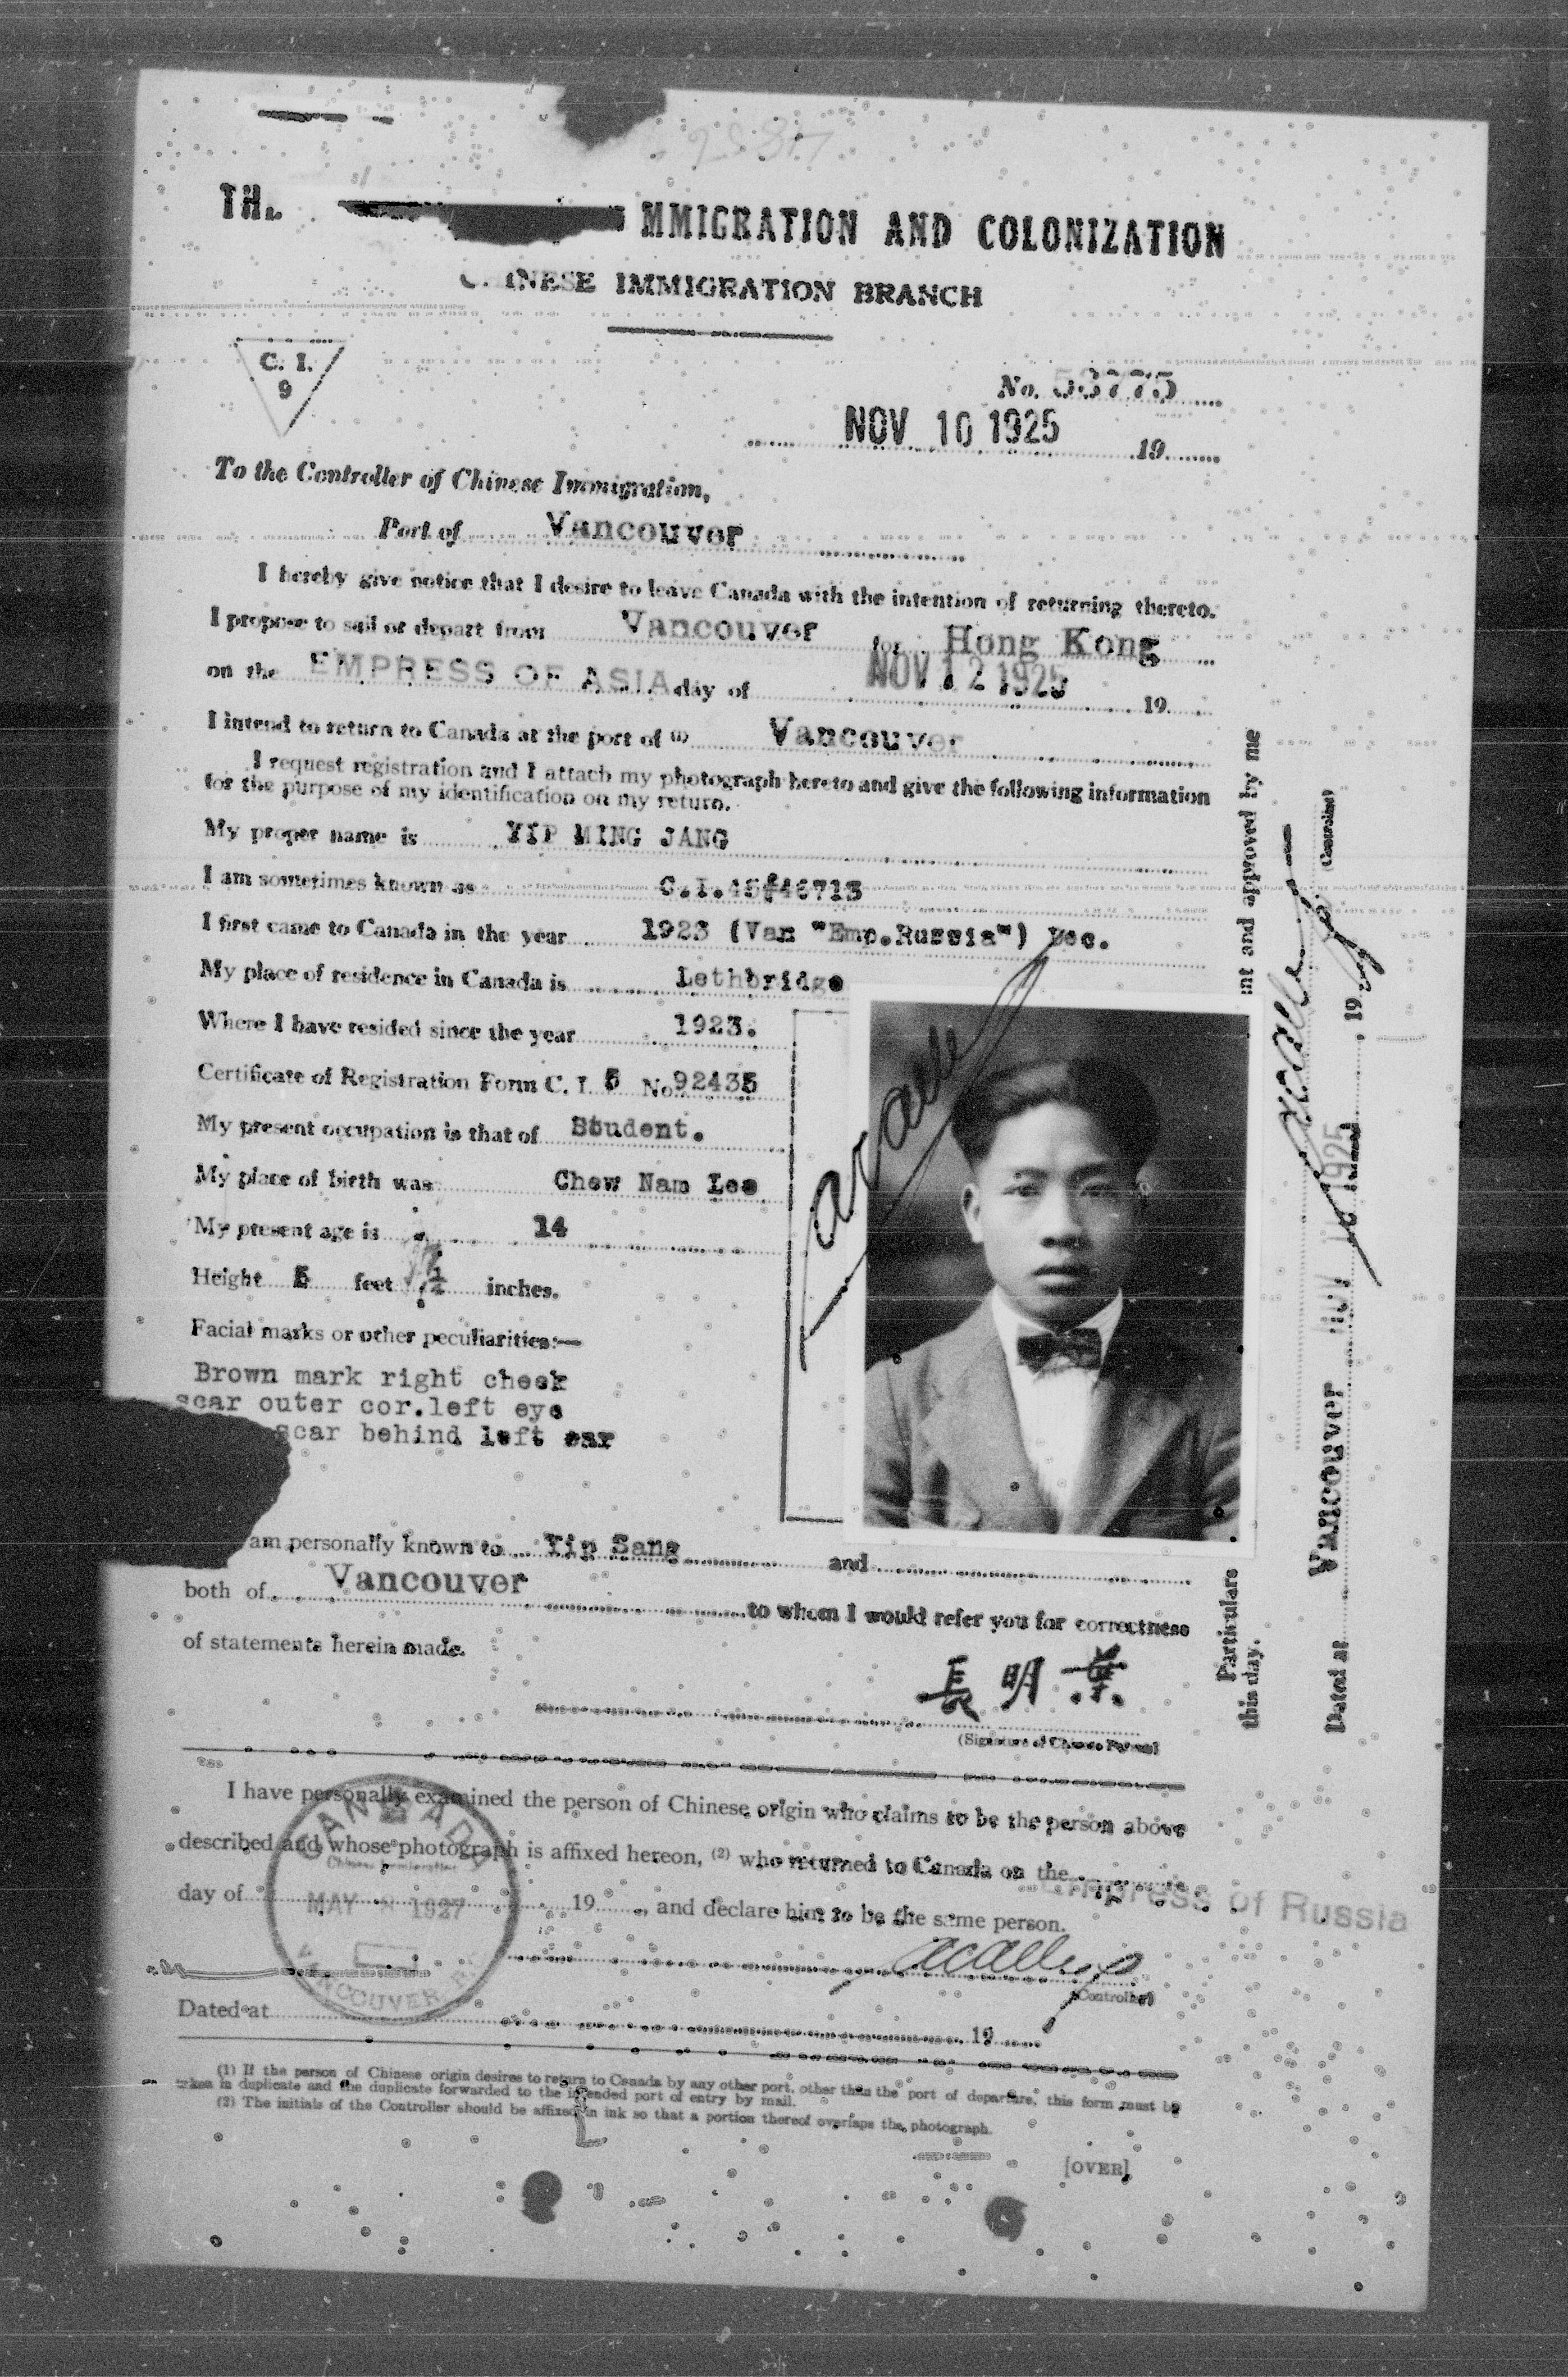 MMIGRATION AND COLONIZATION
INESE IMMIGRATION BRANCH
C. I.
9
No. 53775
NOV 10 1925 19
To the Controller of Chinese Immigration,
Port of Vancouver
I hereby give notice that I desire to leave Canada with the intention of returning thereto.
I propose to sail or depart from Vancouver for Hong Kong
on the EMPRESS OF ASIA day of NOV 12 1925 19
I intend to return to Canada at the port of (1) Vancouver
I request registration and I attach my photograph hereto and give the following information
for the purpose of my identification on my return.
My proper name is YIP MING JANG
I am sometimes known as
I first came to Canada in the year 1923 (Van "Emp.Russia") Dec.
My place of residence in Canada is Lethbridge
Where I have resided since the year 1923.
Certificate of Registration Form C. I. 5 No 92435
My present occupation is that of Student.
My place of birth was Chew Nam Lee
My present age is 14
Height 5 feet inches.
Facial marks or other peculiarities:—
Brown mark right cheek
scar outer cor.left eye
scar behind left ear
am personally known to Yip Sang and
both of Vancouver to whom I would refer you for correctness
of statements herein made.
長明葉
(Signature of Chinese Person)
I have personally examined the person of Chinese origin who claims to be the person above
described and whose photograph is affixed hereon, (2) who returned to Canada on the
Empress of Russia
day of MAY 1927 19 , and declare him to be the same person.
(Controller)
Dated at 19
(1) If the person of Chinese origin desires to return to Canada by any other port, other than the port of departure, this form must be
taken in duplicate and the duplicate forwarded to the intended port of entry by mail.
(2) The initials of the Controller should be affixed in ink so that a portion thereof overlaps the photograph.
[OVER]
CANADA
Chinese Immigration
VANCOUVER
Particulars nt and approved by me
this day.
(Controller)
Dated at Vancouver NOV 10 1925 19